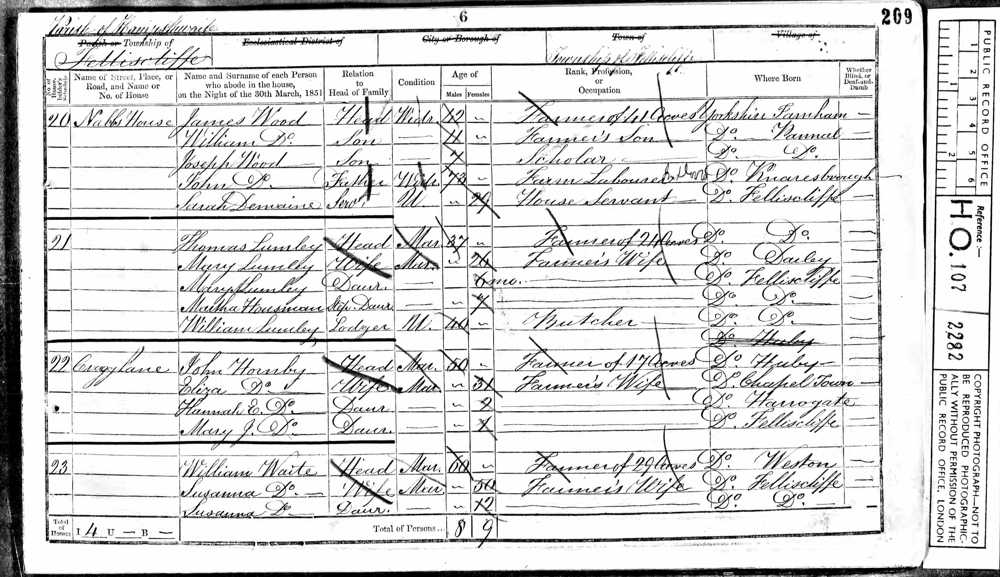 Parish of Hampsthwaite
6
209
Parish or Township of
Ecclesiastical District of
City or Borough of
Town of
Village of
Felliscliffe
Township of Felliscliffe
No. of House-holder's Schedule
Name of Street, Place, or Road, and Name or No. of House
Name and Surname of each Person who abode in the house, on the Night of the 30th March, 1851
Relation to Head of Family
Condition
Age of
Males
Females
Rank, Profession, or Occupation
Where Born
Whether Blind, or Deaf-and-Dumb
20 Nabbs House James Wood Head Widr. 42 " Farmer of 41 Acres Yorkshire Farnham
William Do. Son — 11 " Farmer's Son Do. Pannal
Joseph Wood Son — 7 " Scholar Do. Do.
John Do. Father Widr. 73 " Farm Labourer Do. Knaresborough
Sarah Demaine Serv. U. " 29 House Servant Do. Felliscliffe
21 Thomas Lumley Head Mar. 37 " Farmer of 21 Acres Do. Do.
Mary Lumley Wife Mar. " 26 Farmer's Wife Do. Darley
Mary Lumley Daur. — " 6 mo. Do. Felliscliffe
Martha Housman Step Daur. — " 4 Do. Do.
William Lumley Lodger U. 40 " Butcher Do. Do.
22 Cragg Lane John Hornby Head Mar. 50 " Farmer of 17 Acres Do. Huby
Eliza Do. Wife Mar. " 31 Farmer's Wife Do. Chapel Town
Hannah E. Do. Daur. — " Do. Harrogate
Mary J. Do. Daur. — " 1 Do. Felliscliffe
23 William Waite Head Mar. 60 " Farmer of 29 Acres Do. Weston
Susanna Do. Wife Mar. " 50 Farmer's Wife Do. Felliscliffe
Susanna Do. Daur. — " 12 Do. Do.
Total of Houses I 4 U — B — Total of Persons 8 9
PUBLIC RECORD OFFICE
1 2 3 4 5 6
Reference :-
H.O. 107 2282
COPYRIGHT PHOTOGRAPH—NOT TO BE REPRODUCED PHOTOGRAPHICALLY WITHOUT PERMISSION OF THE PUBLIC RECORD OFFICE, LONDON